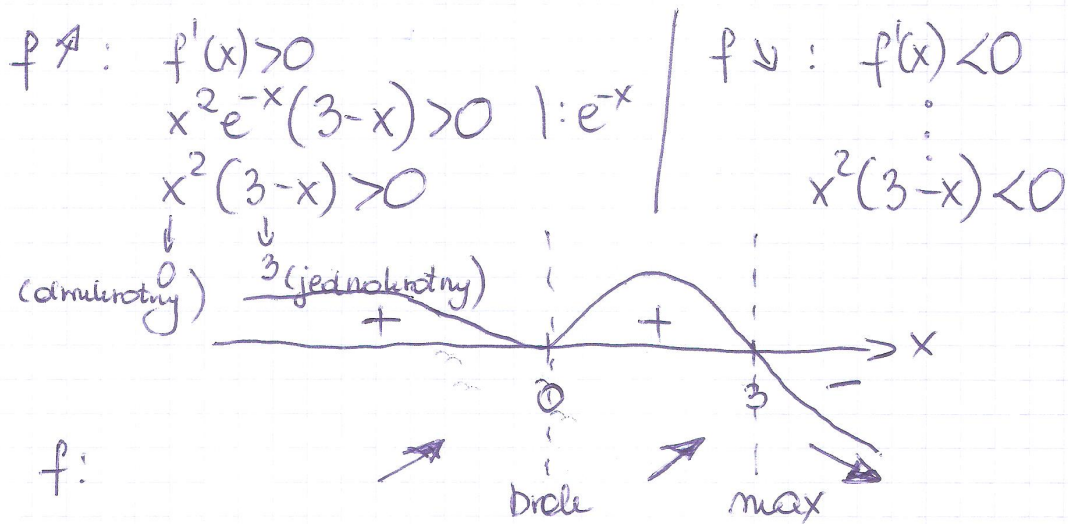 f ↗ : f'(x) > 0
x² e⁻ˣ (3-x) > 0 | : e⁻ˣ
x² (3-x) > 0
↓ ↓
0 3 (jednokrotny)
(dwukrotny)
f ↘ : f'(x) < 0
⋮
x² (3-x) < 0
+ + x
0 3 −
f: ↗ ↗ ↘
brak max